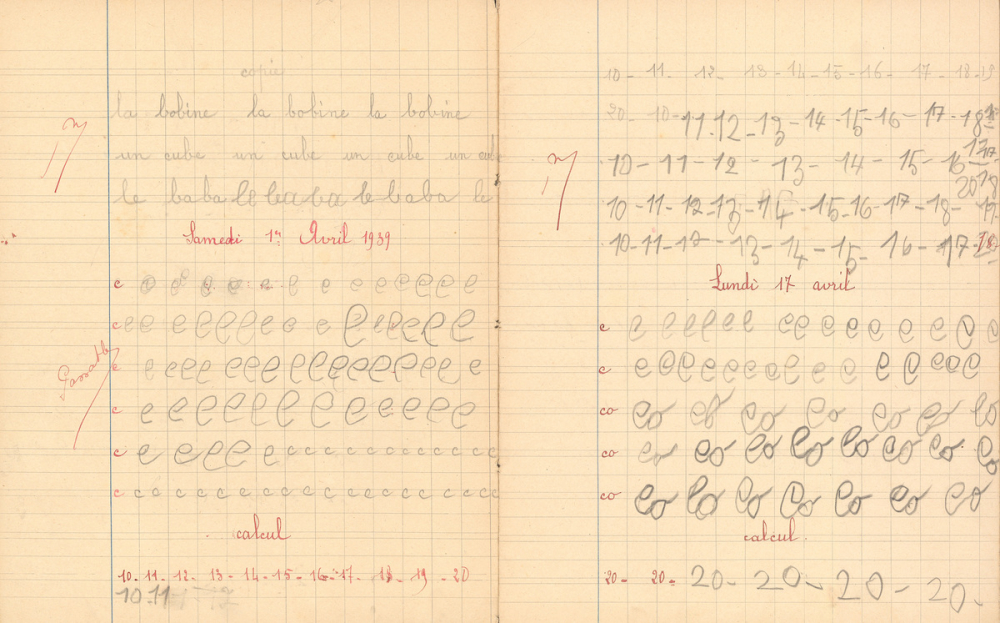 copie
la bobine la bobine la bobine
un cube un cube un cube un cube
le baba le baba le baba le
Samedi 1er Avril 1939
e e e e e e e e e e e e e
c e e e e e e e e e e e e e e
Passable
e e e e e e e e e e e e e e e e
c e e e e e e e e e e e e
c e e e e e c c c c c c c c c c c c
c c c c c c c c c c c c c c c c
calcul
10-11-12-13-14-15-16-17-18-19-20
10-11-12
10-11-12-13-14-15-16-17-18-19
20-10-11-12-13-14-15-16-17-18
10-11-12-13-14-15-16
10-11-12-13-14-15-16-17-18-
10-11-12-13-14-15-16-17-
Lundi 17 avril
e e e e e e e e e e e e e e e
e e e e e e e e e e e e e e
co co co co co co co co
co co co co co co co co co
co co co co co co co co
calcul.
20-20-20-20-20-20-